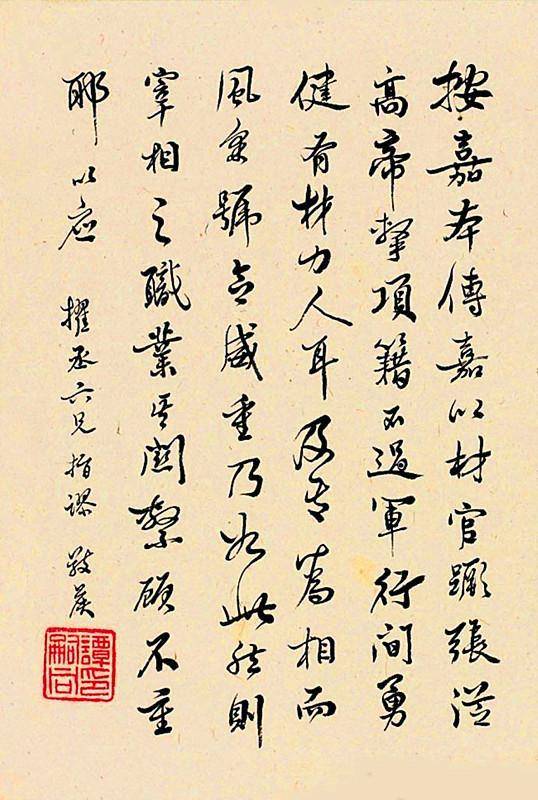 按嘉本傳嘉以材官蹶張從
高帝擊項籍不過軍行間勇
健有材力人耳及其為相而
風采號令威重乃如此然則
宰相之職業其關繫顧不重
耶 以應 擢丞六兄指謬
譚印嗣同